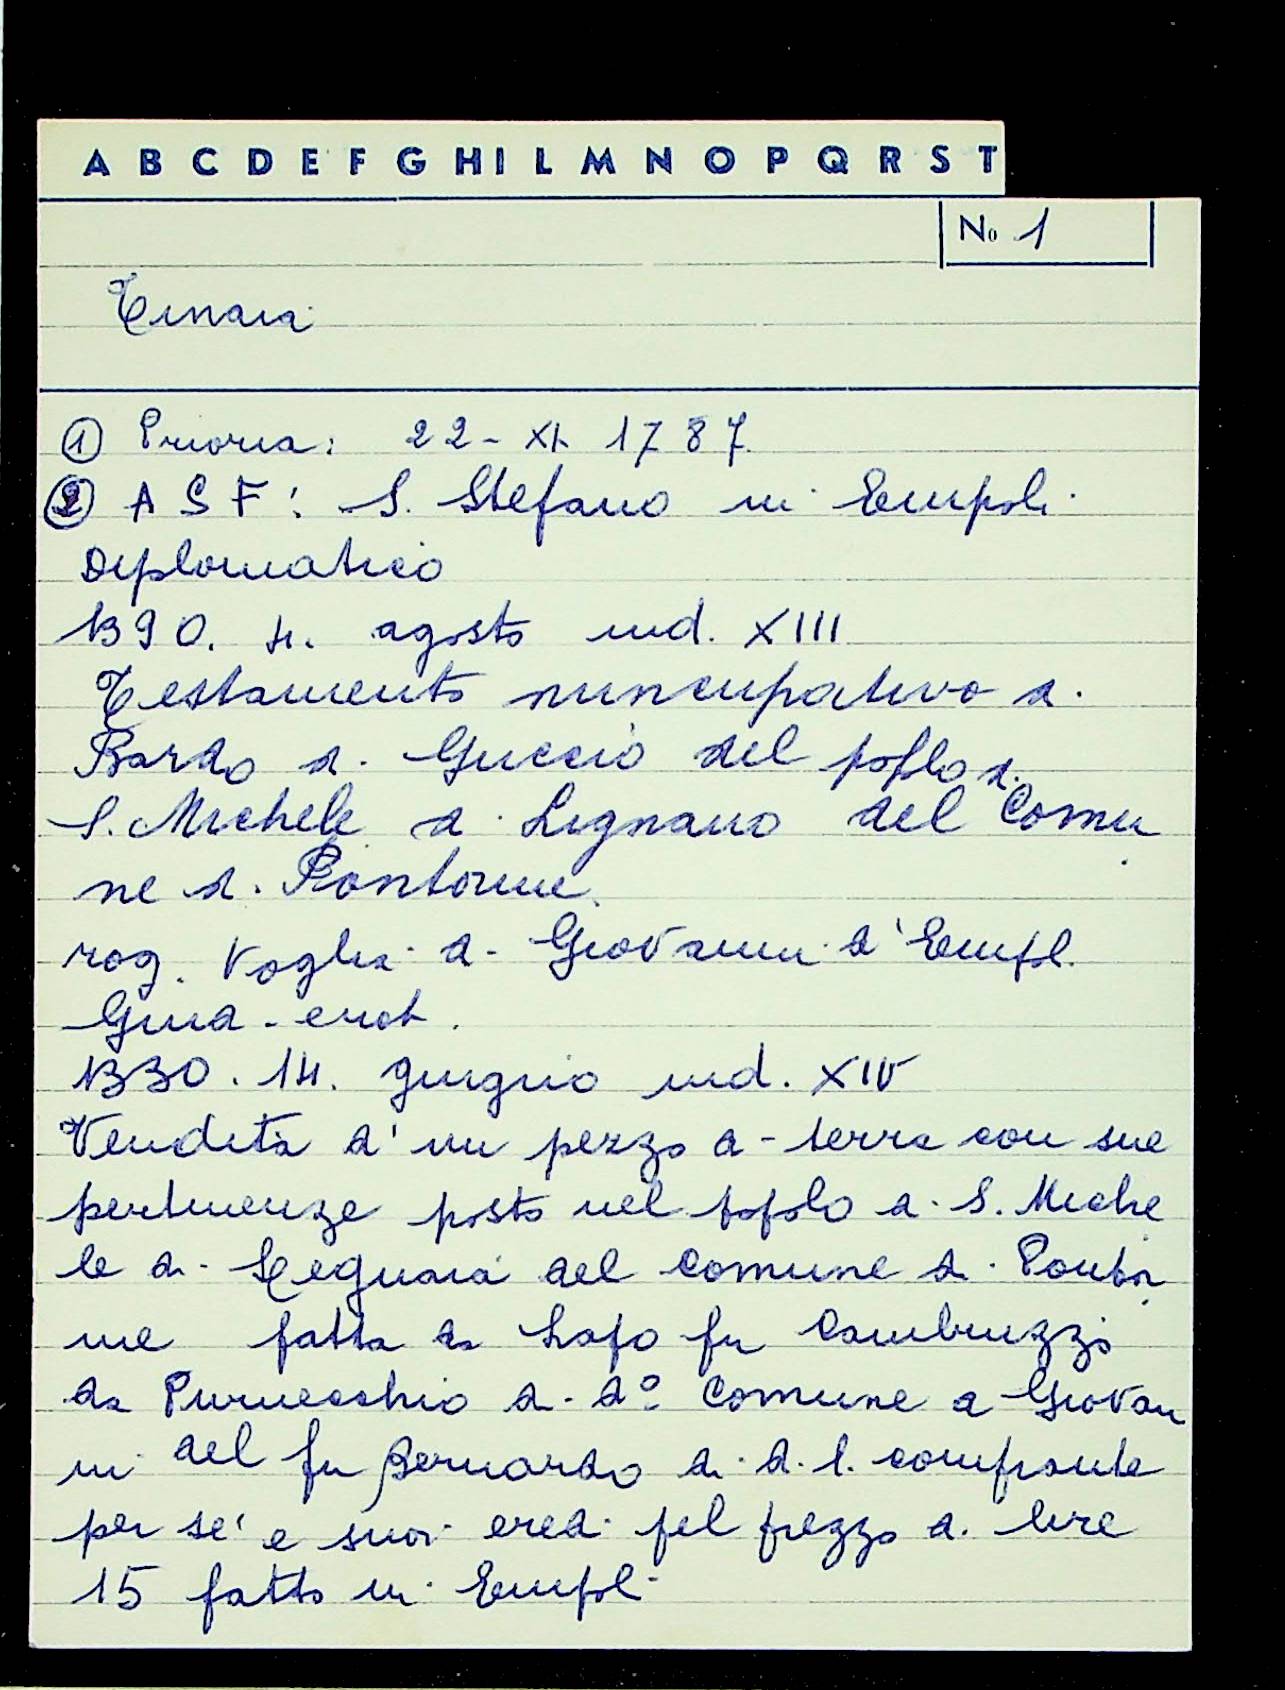 A B C D E F G H I L M N O P Q R S T
No 1
Tinaia
① Prioria: 22-XI 1787
② A S F: S. Stefano in Empoli
Diplomatico
1390. 4. agosto ind. XIII
Testamento nuncupativo di
Bardo di Guccio del popolo di
S. Michele di Lignano del Comu
ne di Pontorme.
rog. Voglia di Giovanni d'Empoli
1330. 14. giugno ind. XIV
Vendita d'un pezzo di terra con sue
pertinenze posto nel popolo di S. Miche
le di del comune di Pontor
me fatta da Lapo fu Cambruzzi
da Puruecchio di do: Comune a Giovan
ni del fu Bernardo di d. l. comprante
per sé e suoi eredi pel prezzo di lire
15 fatto in Empoli